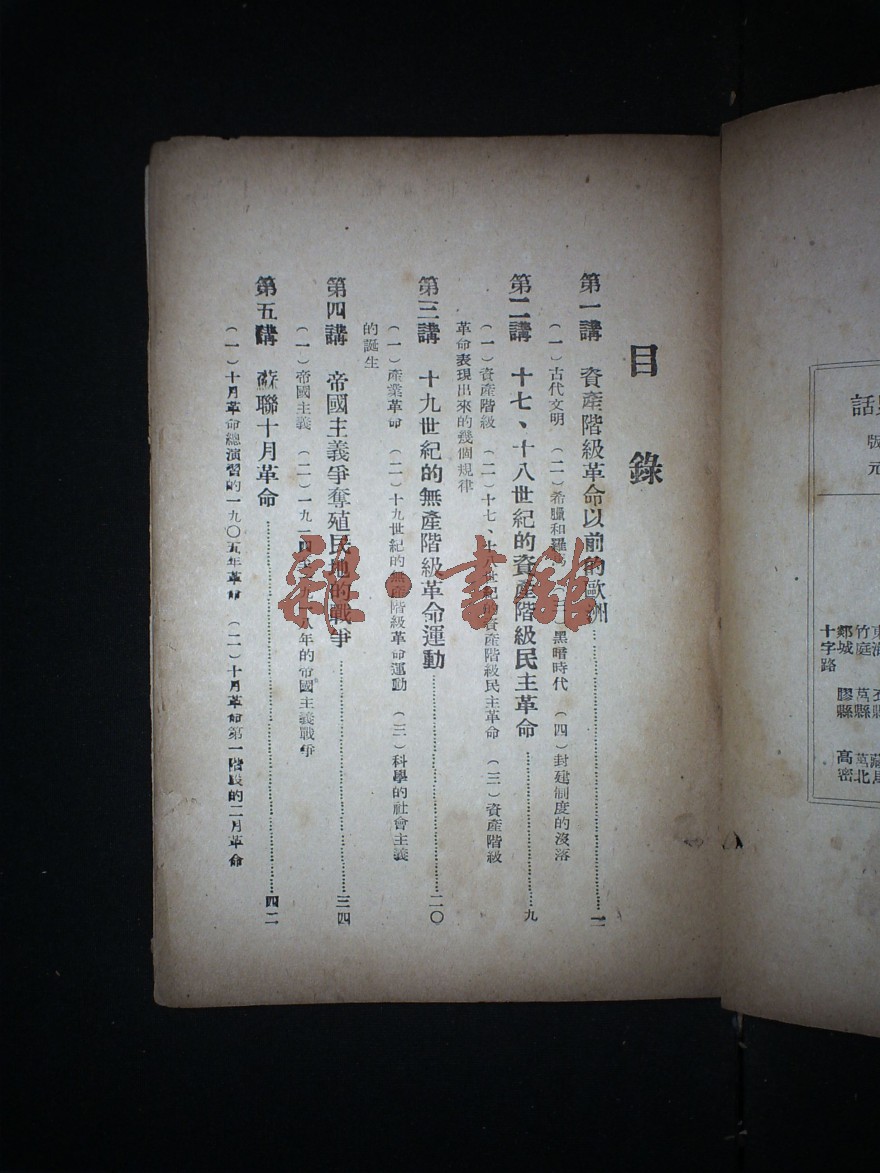 目錄
第一講 資產階級革命以前的歐洲
（一）古代文明 （二）希臘和羅馬 （三）黑暗時代 （四）封建制度的沒落
第二講 十七、十八世紀的資產階級民主革命 九
（一）資產階級 （二）十七、十八世紀的資產階級民主革命 （三）資產階級
革命表現出來的幾個規律
第三講 十九世紀的無產階級革命運動 二〇
（一）產業革命 （二）十九世紀的無產階級革命運動 （三）科學的社會主義
的誕生
第四講 帝國主義爭奪殖民地的戰爭 三四
（一）帝國主義 （二）一九一四—一九一八年的帝國主義戰爭
第五講 蘇聯十月革命 四二
（一）十月革命總演習的一九〇五年革命 （二）十月革命第一階段的二月革命
雜·書館
話
版
元
竹庭 莒縣 莒北
郯城 膠縣 高密
十字路